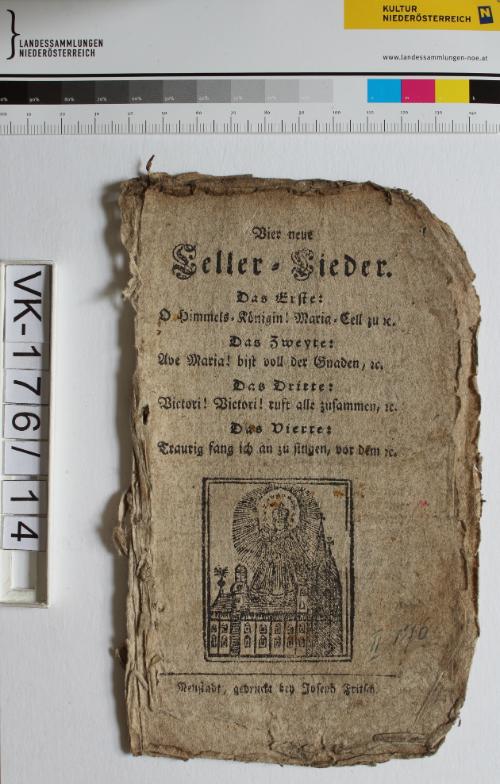 LANDESSAMMLUNGEN
NIEDERÖSTERREICH
KULTUR
NIEDERÖSTERREICH
N
www.landessammlungen-noe.at
VK-176/14
Vier neue
Celler-Lieder.
Das Erste:
O Himmels-Königin! Maria-Cell zu ꝛc.
Das Zweyte:
Ave Maria! bist voll der Gnaden, ꝛc.
Das Dritte:
Victori! Victori! ruft alle zusammen, ꝛc.
Das Vierte:
Traurig fang ich an zu singen, vor dem ꝛc.
Neustadt, gedruckt bey Joseph Fritsch.